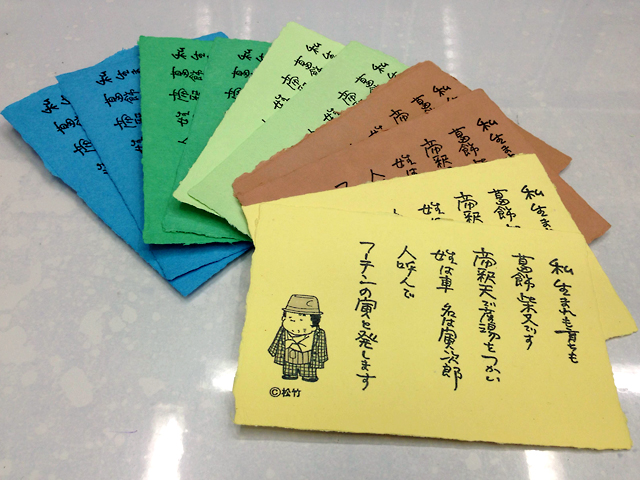 私 生まれも育ちも
葛飾 柴又です
帝釈天で産湯をつかい
姓は車 名は寅次郎
人呼んで
フーテンの寅と発します
©松竹
私 生ま
葛飾
帝釈
姓は
私 生ま
葛飾
帝釈
姓は
人
フ
私
葛
帝
私 生
葛飾
帝
姓
私 生
葛飾
帝
姓
人
私 生
葛飾
帝
私 生
葛飾
帝釈
姓
人
私 生ま
葛飾
帝釈
姓
私 生
葛飾
帝
姓